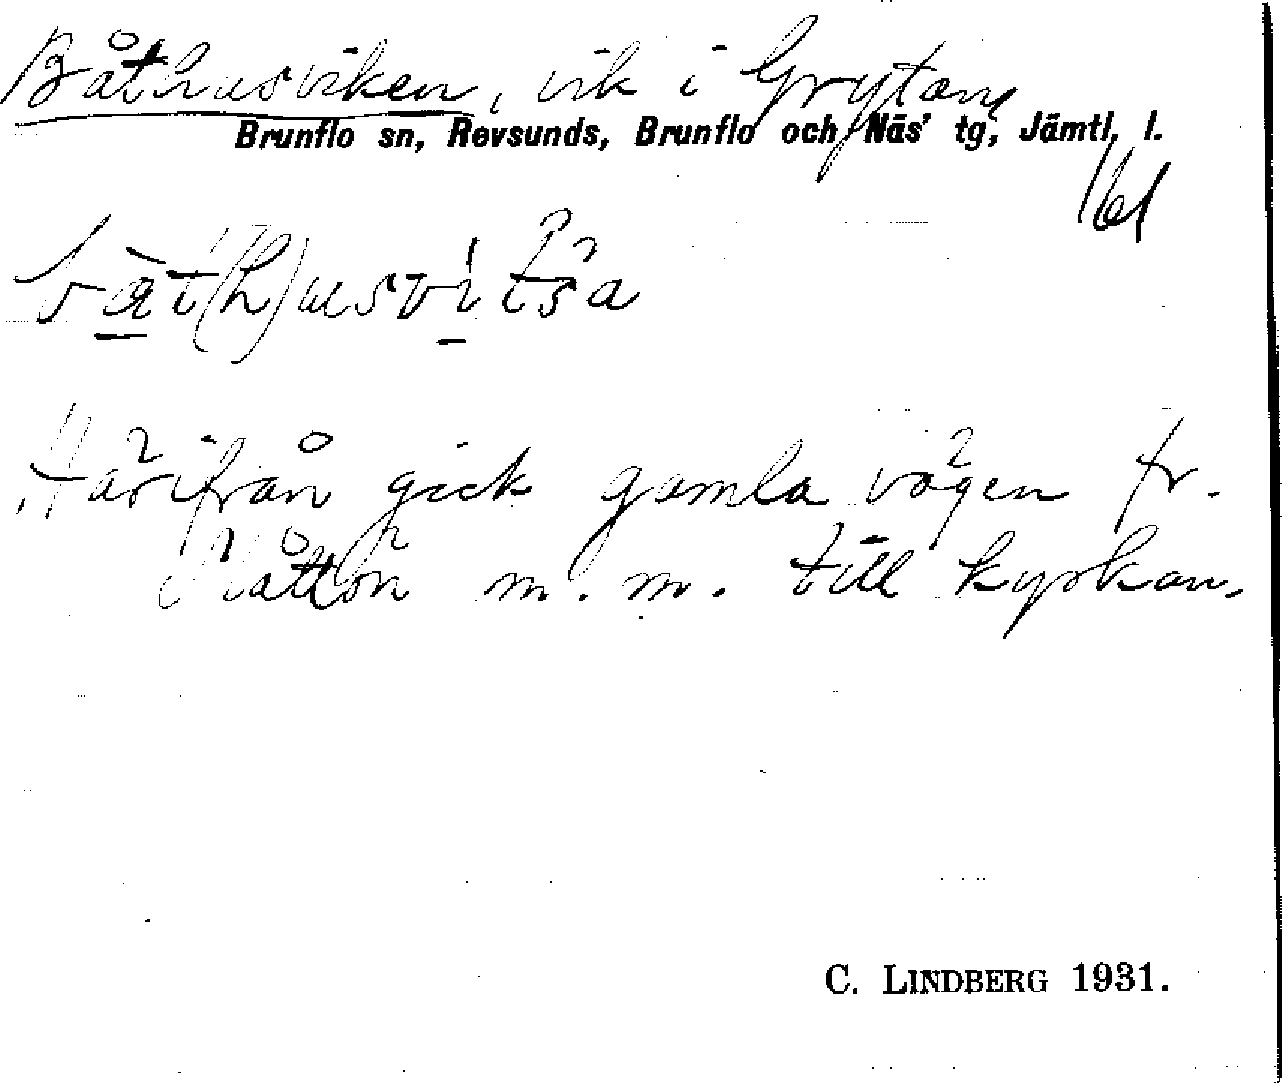 Båthusviken, vik i Grytan
Brunflo sn, Revsunds, Brunflo och Näs' tg, Jämtl. l.
Härifrån gick gamla vägen fr.
Slåttön m. m. till kyrkan.
C. LINDBERG 1931.